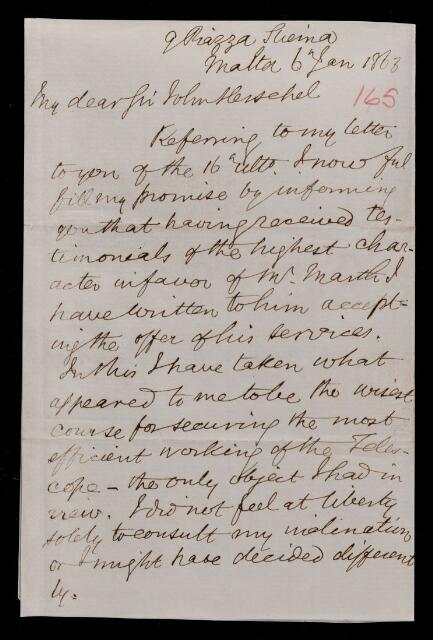 9 Piazza Sliema
Malta 6th Jan 1863
My dear Sir John Herschel
165
Referring to my letter
to you of the 16th ulto. I now ful
fill my promise by informing
you that having received tes-
timonials of the highest char-
acter in favor of Mr. Marth I
have written to him accept-
ing the offer of his services.
In this I have taken what
appeared to me to be the wisest
course for securing the most
efficient working of the Teles-
cope - the only object I had in
view. I did not feel at liberty
solely to consult my inclination
or I might have decided different
ly.